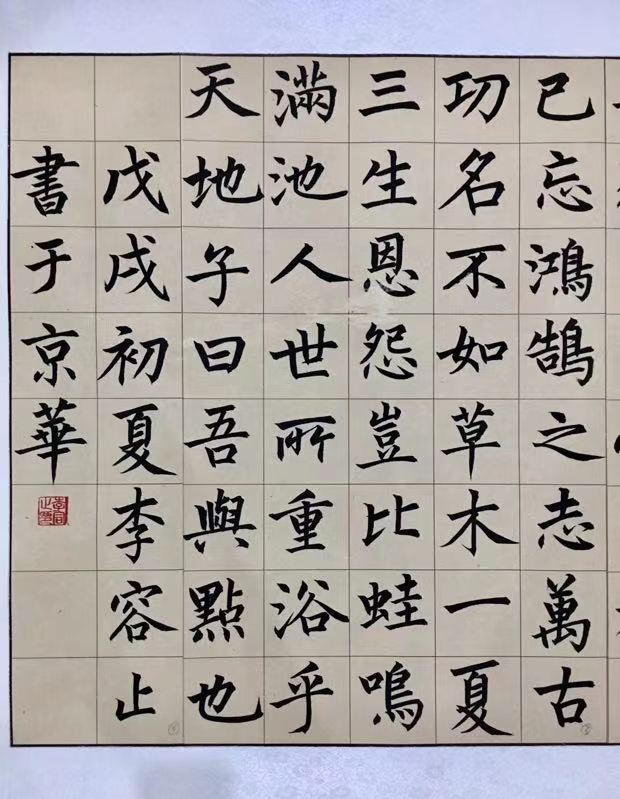 已忘鴻鵠之志萬古
功名不如草木一夏
三生恩怨豈比蛙鳴
滿池人世所重浴乎
天地子曰吾與點也
戊戌初夏李容止
書于京華